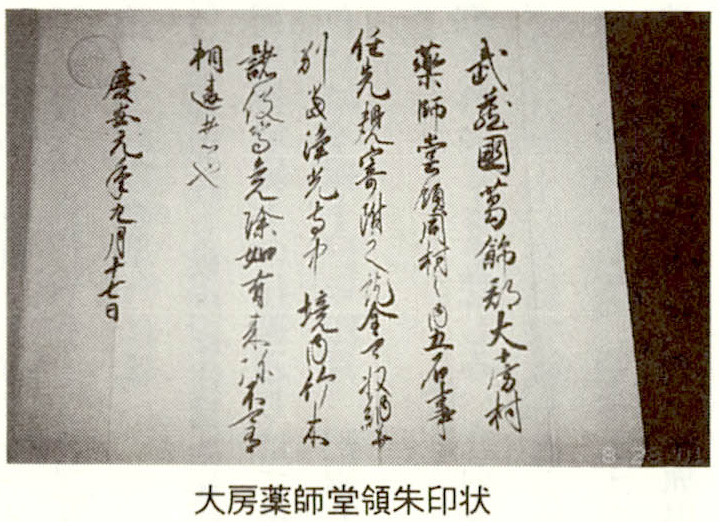 武蔵國葛飾郡大房村
薬師堂領同村之内五石事
任先規寄附之訖全可収納并
別當浄光寺中境内竹木
諸役等免除如有来弥不可有
相違者也
慶安元年九月十七日
8 23
大房薬師堂領朱印状